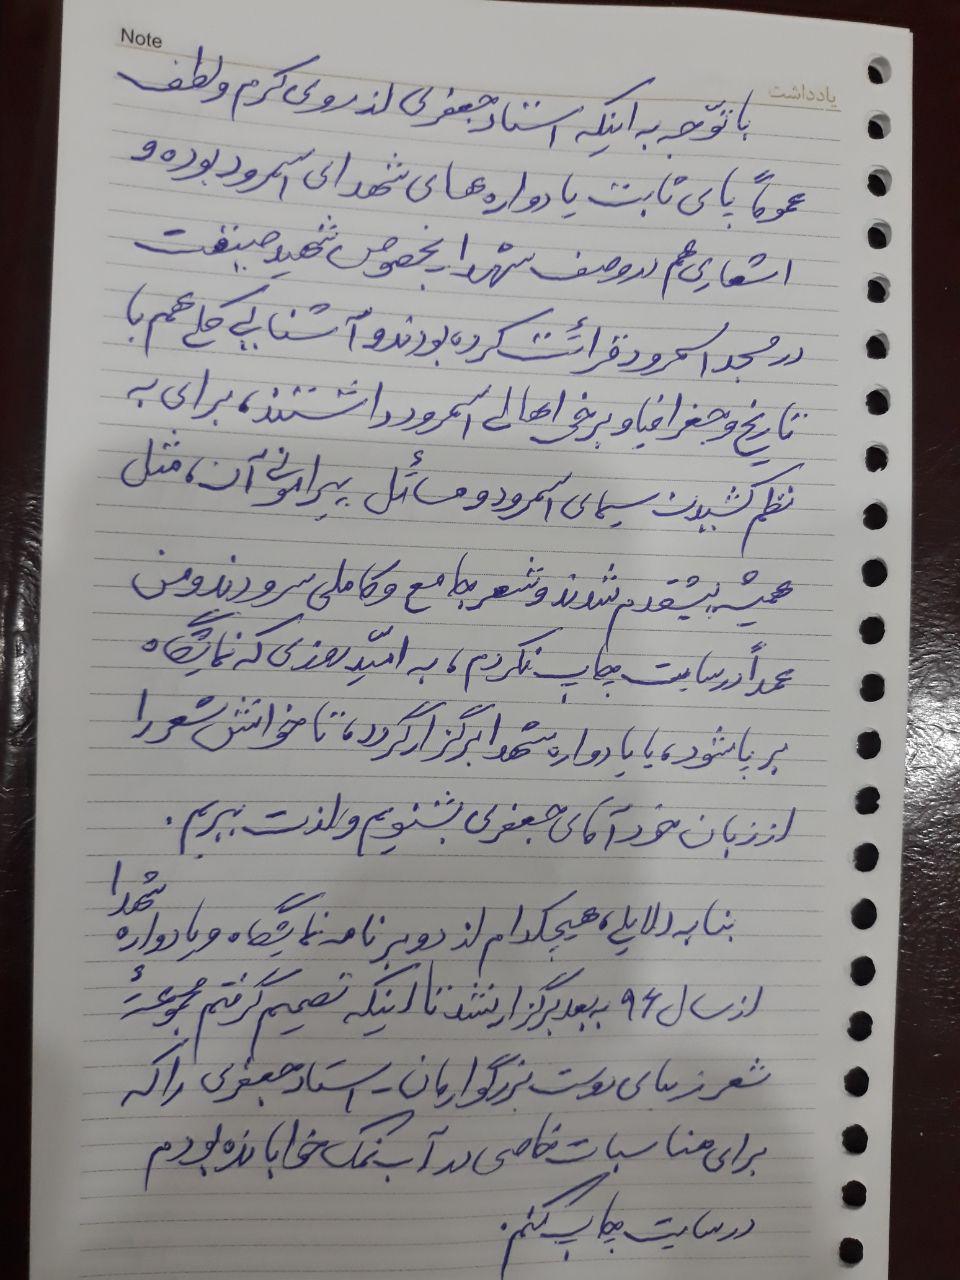 Note
یادداشت
با توّجه به اینکه استاد جعفری از روی کرم و لطف
عموماً پای ثابت یادواره های شهدای اسمرود بوده و
اشعاری هم در وصف شهدا بخصوص شهید صنعت
در مسجد اسمرود قرائت کرده بودند و آشنایی کلی هم با
تاریخ و جغرافیا و برخی اهالی اسمرود داشتند، برای به
نظم کشیدن سیمای اسمرود و مسائل پیرامونی آن، مثل
همیشه پیشقدم شدند و شعر جامع و کاملی سرودند و من
عمداً در سایت چاپ نکردم، به امّید روزی که نمایشگاه
برپا شود، یا یادواره شهدا برگزار گردد، تا خوانش شعر را
از زبان خود آقای جعفری بشنویم و لذت ببریم.
بنا به دلایلی، هیچکدام از دو برنامه نمایشگاه و یادواره شهدا
از سال ۹۶ به بعد برگزار نشد تا اینکه تصمیم گرفتم مجموعهٔ
شعر زیبای دوست بزرگوارمان - استاد جعفری را که
برای مناسبات خاصی در آب نمک خوابانده بودم
در سایت چاپ کنم.